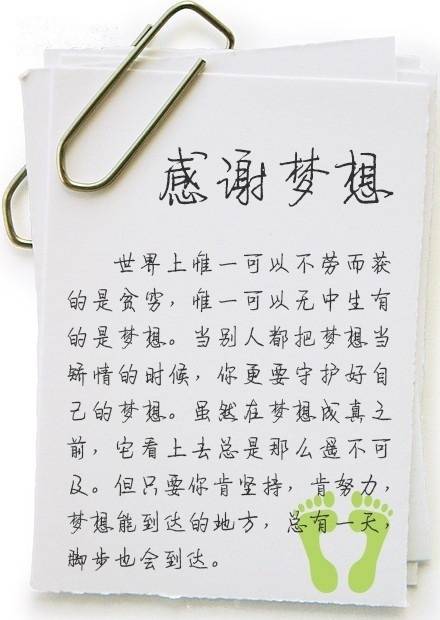 感谢梦想
世界上惟一可以不劳而获
的是贫穷，惟一可以无中生有
的是梦想。当别人都把梦想当
矫情的时候，你更要守护好自
己的梦想。虽然在梦想成真之
前，它看上去总是那么遥不可
及。但只要你肯坚持，肯努力，
梦想能到达的地方，总有一天，
脚步也会到达。